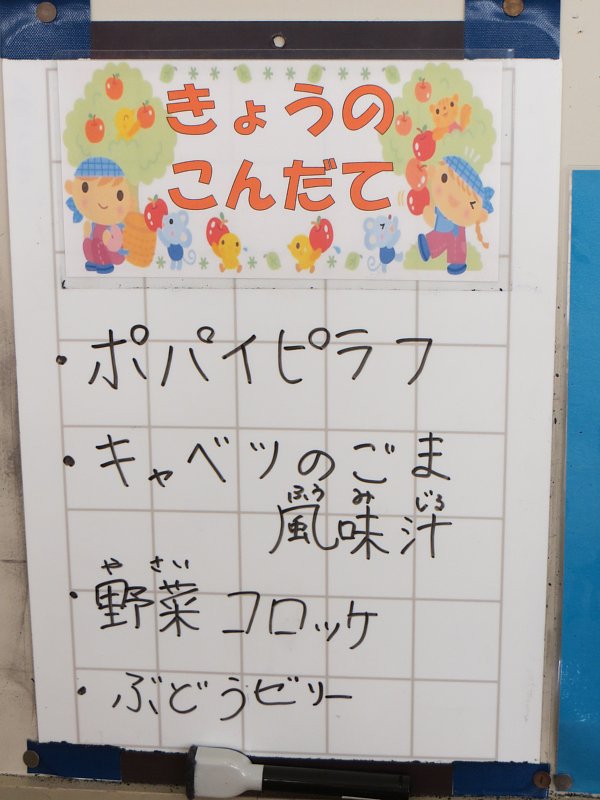 きょうの
こんだて
・ポパイピラフ
・キャベツのごま
ふうみじる
風味汁
やさい
・野菜コロッケ
・ぶどうゼリー